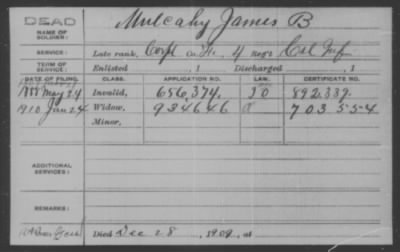 DEAD
NAME OF SOLDIER: Mulcahy James B
SERVICE: Late rank, Corpl Co. H, 4 Reg't Cal Inf
TERM OF SERVICE: Enlisted , 1 Discharged , 1
DATE OF FILING. CLASS. APPLICATION NO. LAW. CERTIFICATE NO.
May 24 Invalid, 656,374. 892.339.
1910 Jan 24 Widow, 934646 703554
Minor,
ADDITIONAL SERVICES:
REMARKS:
Died Dec 28 , 1909, at